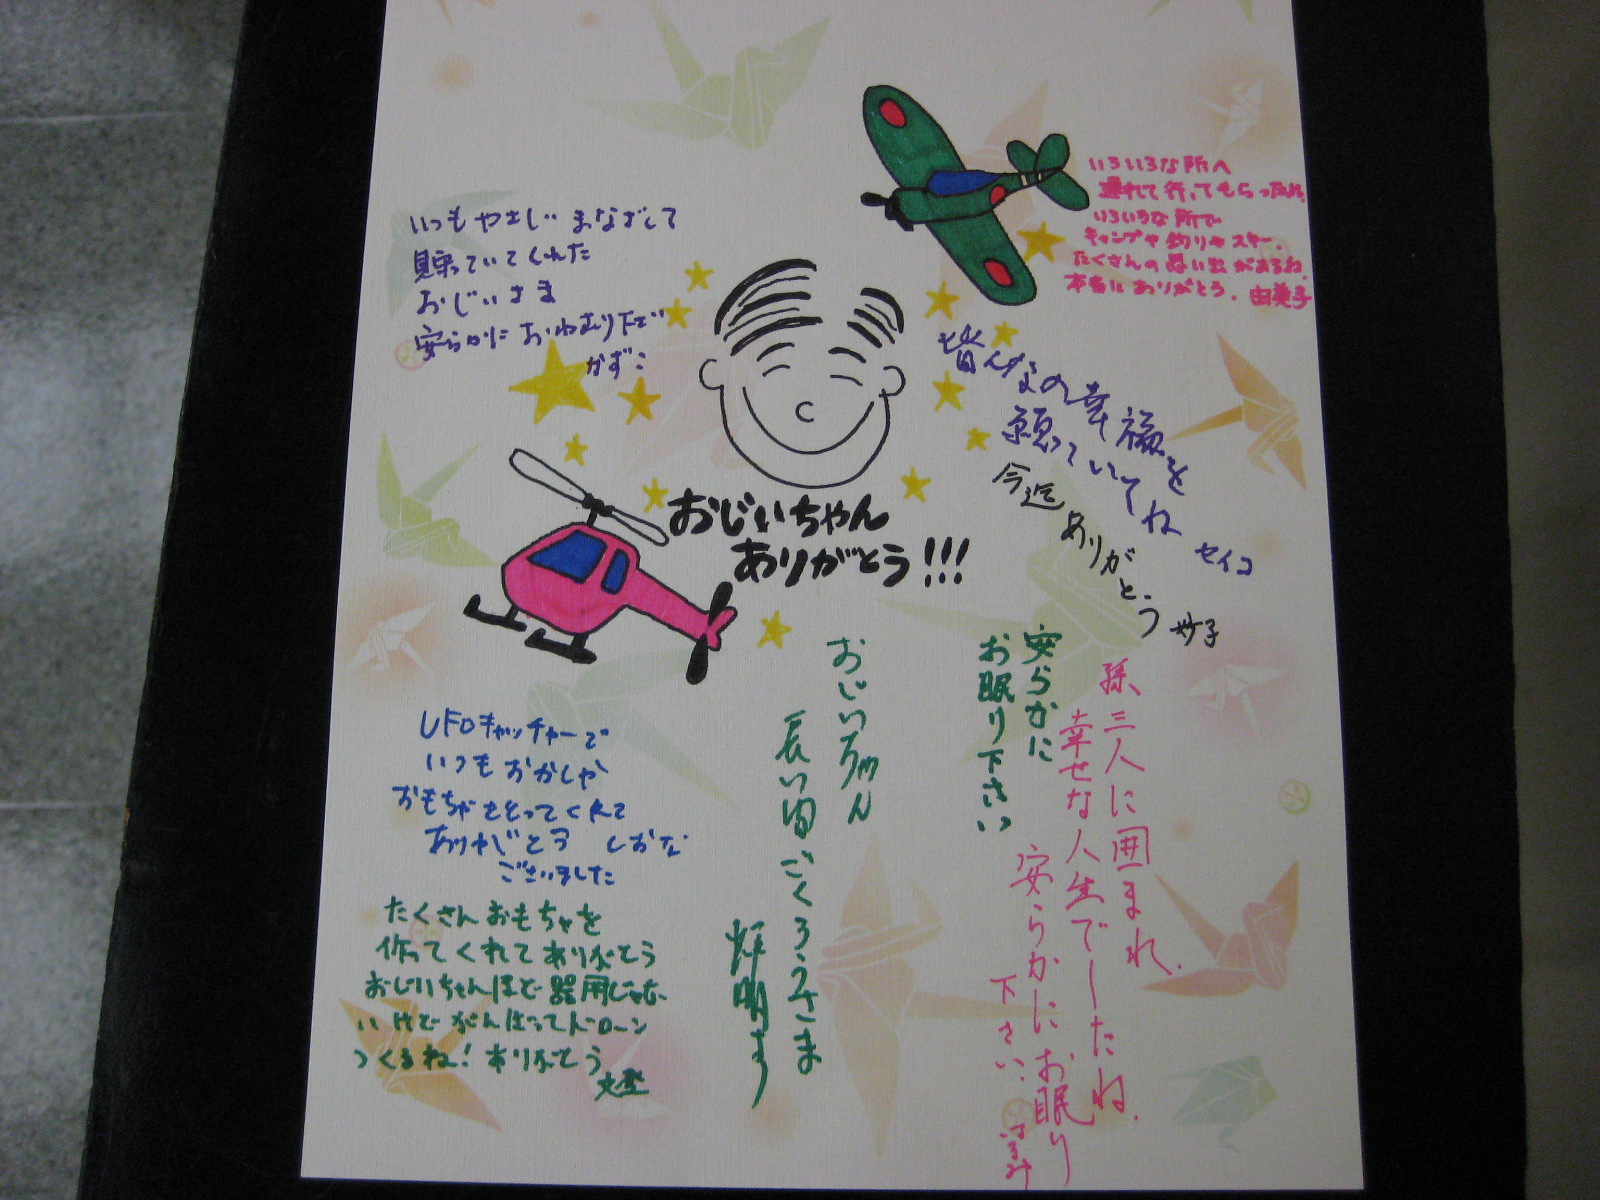 いつもやさしいまなざしで
見守っていてくれた
おじいさま
安らかにおねむり下さい
かずこ
いろいろな所へ
連れて行ってもらったね。
いろいろな所で
キャンプや釣りやスキー。
たくさんの思い出があるね。
本当にありがとう。由美子
皆んなの幸福を
願っていてね セイコ
今迄ありがとう 妙子
おじいちゃん
ありがとう!!!
孫、三人に囲まれ、
幸せな人生でしたね。
安らかにお眠り
下さい。
安らかに
お眠り下さい
おじいちゃん
長い間ごくろうさま
UFOキャッチャーで
いつもおかしや
おもちゃをとってくれて
ありがとう
ございました
しおな
たくさんおもちゃを
作ってくれてありがとう
おじいちゃんほど器用じゃな
いけどがんばってドローン
つくるね!ありがとう